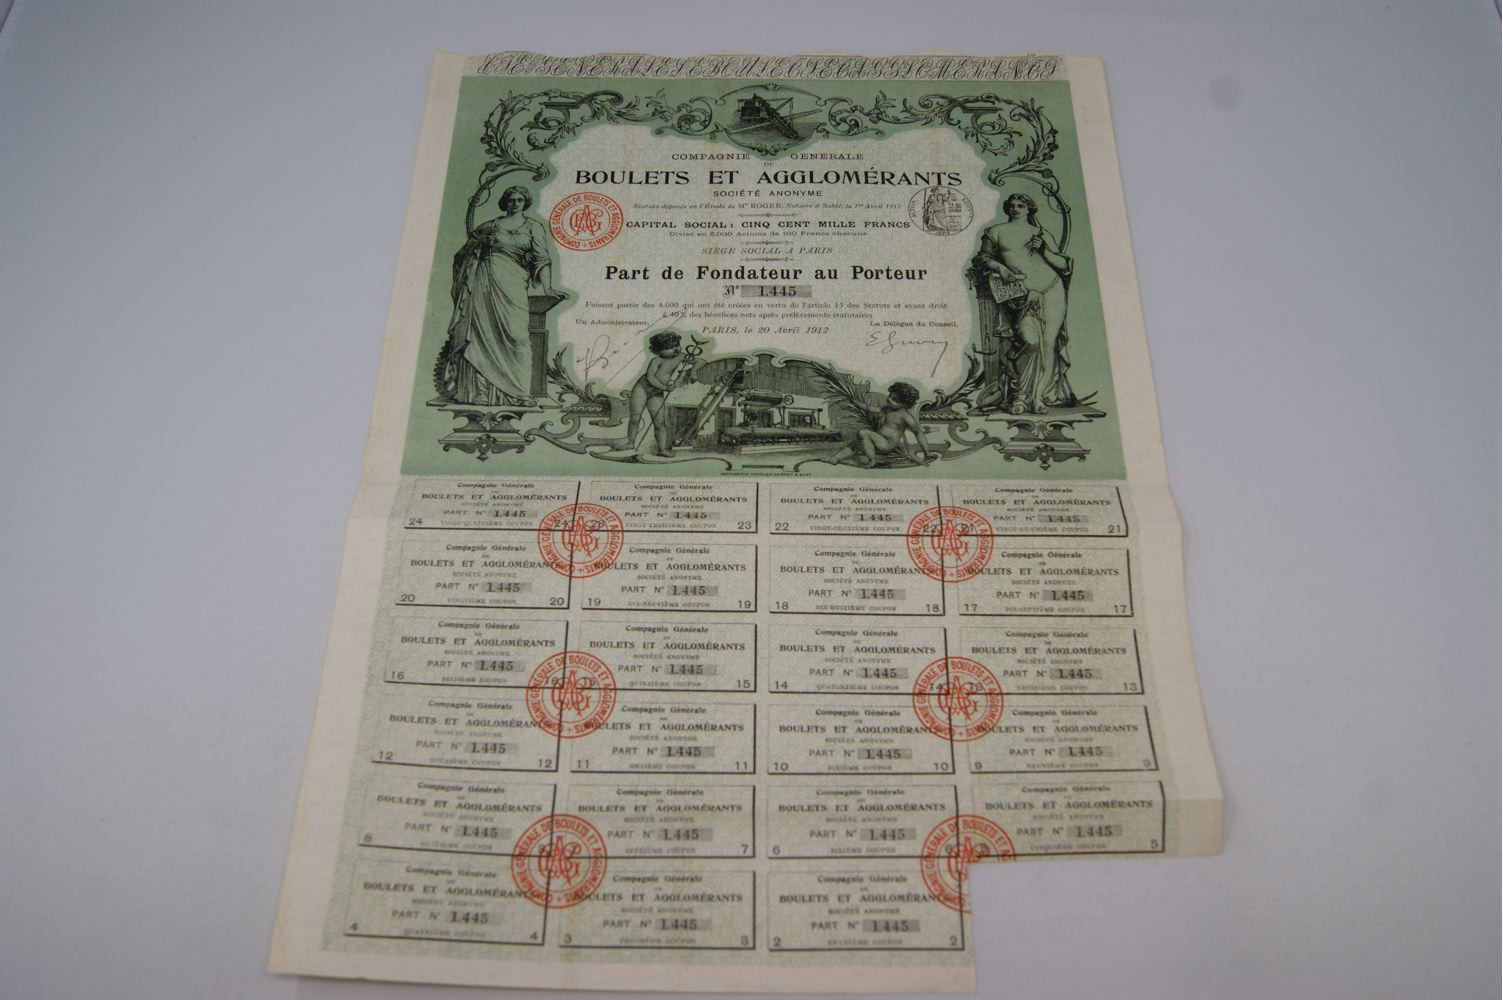 CIE GENERALE DE BOULETS ET AGGLOMERANTS
COMPAGNIE GENERALE
DE
BOULETS ET AGGLOMÉRANTS
SOCIÉTÉ ANONYME
Statuts déposés en l'Étude de Me ROGER, Notaire à Sablé, le 1er Avril 1912
CAPITAL SOCIAL: CINQ CENT MILLE FRANCS
Divisé en 5.000 Actions de 100 Francs chacune
SIÈGE SOCIAL A PARIS
Part de Fondateur au Porteur
N° 1.445
Faisant partie des 4.000 qui ont été créées en vertu de l'article 13 des Statuts et ayant droit
à 40% des bénéfices nets après prélèvements statutaires
Un Administrateur,
Le Délégué du Conseil,
PARIS, le 20 Avril 1912
COMPAGNIE GÉNÉRALE DE BOULETS ET AGGLOMÉRANTS
Compagnie Générale
DE
BOULETS ET AGGLOMÉRANTS
SOCIÉTÉ ANONYME
PART N° 1.445
24 VINGT-QUATRIÈME COUPON 24
Compagnie Générale
DE
BOULETS ET AGGLOMÉRANTS
SOCIÉTÉ ANONYME
PART N° 1.445
23 VINGT-TROISIÈME COUPON 23
Compagnie Générale
DE
BOULETS ET AGGLOMÉRANTS
SOCIÉTÉ ANONYME
PART N° 1.445
22 VINGT-DEUXIÈME COUPON 22
Compagnie Générale
DE
BOULETS ET AGGLOMÉRANTS
SOCIÉTÉ ANONYME
PART N° 1.445
21 VINGT-ET-UNIÈME COUPON 21
Compagnie Générale
DE
BOULETS ET AGGLOMÉRANTS
SOCIÉTÉ ANONYME
PART N° 1.445
20 VINGTIÈME COUPON 20
Compagnie Générale
DE
BOULETS ET AGGLOMÉRANTS
SOCIÉTÉ ANONYME
PART N° 1.445
19 DIX-NEUVIÈME COUPON 19
Compagnie Générale
DE
BOULETS ET AGGLOMÉRANTS
SOCIÉTÉ ANONYME
PART N° 1.445
18 DIX-HUITIÈME COUPON 18
Compagnie Générale
DE
BOULETS ET AGGLOMÉRANTS
SOCIÉTÉ ANONYME
PART N° 1.445
17 DIX-SEPTIÈME COUPON 17
Compagnie Générale
DE
BOULETS ET AGGLOMÉRANTS
SOCIÉTÉ ANONYME
PART N° 1.445
16 SEIZIÈME COUPON 16
Compagnie Générale
DE
BOULETS ET AGGLOMÉRANTS
SOCIÉTÉ ANONYME
PART N° 1.445
15 QUINZIÈME COUPON 15
Compagnie Générale
DE
BOULETS ET AGGLOMÉRANTS
SOCIÉTÉ ANONYME
PART N° 1.445
14 QUATORZIÈME COUPON 14
Compagnie Générale
DE
BOULETS ET AGGLOMÉRANTS
SOCIÉTÉ ANONYME
PART N° 1.445
13 TREIZIÈME COUPON 13
Compagnie Générale
DE
BOULETS ET AGGLOMÉRANTS
SOCIÉTÉ ANONYME
PART N° 1.445
12 DOUZIÈME COUPON 12
Compagnie Générale
DE
BOULETS ET AGGLOMÉRANTS
SOCIÉTÉ ANONYME
PART N° 1.445
11 ONZIÈME COUPON 11
Compagnie Générale
DE
BOULETS ET AGGLOMÉRANTS
SOCIÉTÉ ANONYME
PART N° 1.445
10 DIXIÈME COUPON 10
Compagnie Générale
DE
BOULETS ET AGGLOMÉRANTS
SOCIÉTÉ ANONYME
PART N° 1.445
9 NEUVIÈME COUPON 9
Compagnie Générale
DE
BOULETS ET AGGLOMÉRANTS
SOCIÉTÉ ANONYME
PART N° 1.445
8 HUITIÈME COUPON 8
Compagnie Générale
DE
BOULETS ET AGGLOMÉRANTS
SOCIÉTÉ ANONYME
PART N° 1.445
7 SEPTIÈME COUPON 7
Compagnie Générale
DE
BOULETS ET AGGLOMÉRANTS
SOCIÉTÉ ANONYME
PART N° 1.445
6 SIXIÈME COUPON 6
Compagnie Générale
DE
BOULETS ET AGGLOMÉRANTS
SOCIÉTÉ ANONYME
PART N° 1.445
5 CINQUIÈME COUPON 5
Compagnie Générale
DE
BOULETS ET AGGLOMÉRANTS
SOCIÉTÉ ANONYME
PART N° 1.445
4 QUATRIÈME COUPON 4
Compagnie Générale
DE
BOULETS ET AGGLOMÉRANTS
SOCIÉTÉ ANONYME
PART N° 1.445
3 TROISIÈME COUPON 3
Compagnie Générale
DE
BOULETS ET AGGLOMÉRANTS
SOCIÉTÉ ANONYME
PART N° 1.445
2 DEUXIÈME COUPON 2